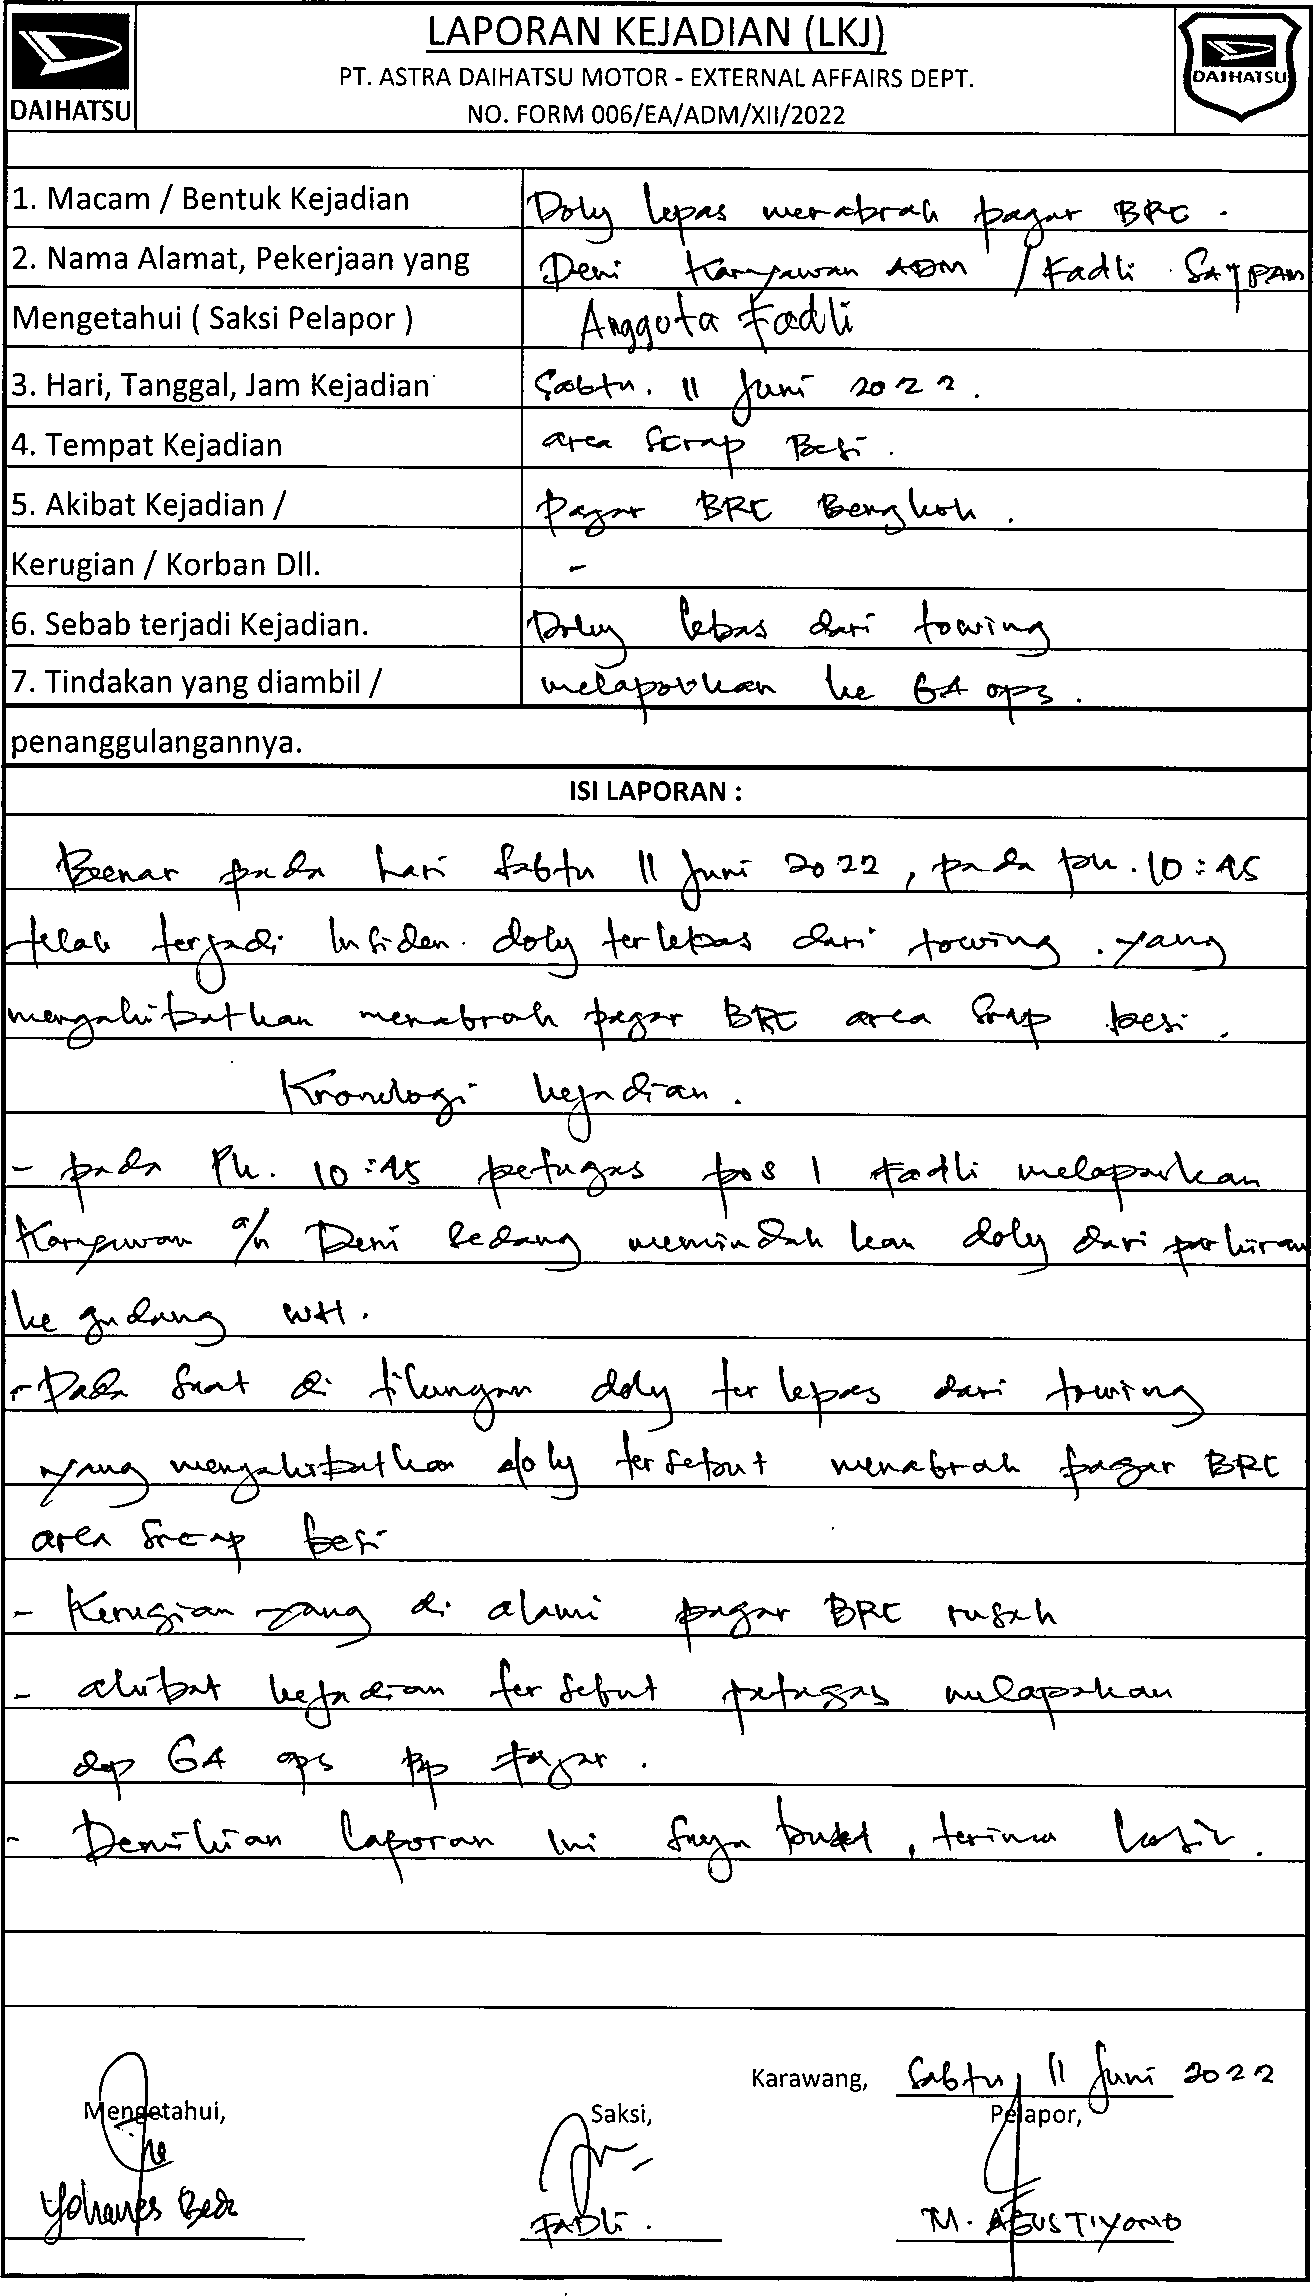 DAIHATSU
LAPORAN KEJADIAN (LKJ)
PT. ASTRA DAIHATSU MOTOR - EXTERNAL AFFAIRS DEPT.
NO. FORM 006/EA/ADM/XII/2022
DAIHATSU
1. Macam / Bentuk Kejadian Doly lepas menabrak pagar BRC.
2. Nama Alamat, Pekerjaan yang Deni Karyawan ADM / Fadli SATPAM
Mengetahui ( Saksi Pelapor ) Anggota Fadli
3. Hari, Tanggal, Jam Kejadian Sabtu. 11 Juni 2022.
4. Tempat Kejadian area Scrap Besi.
5. Akibat Kejadian / Pagar BRC Bengkok.
Kerugian / Korban Dll. -
6. Sebab terjadi Kejadian. Doly lepas dari towing
7. Tindakan yang diambil / melaporkan ke GA ops.
penanggulangannya.
ISI LAPORAN :
Beenar pada hari Sabtu 11 Juni 2022, pada pk. 10:45
telah terjadi Insiden. doly terlepas dari towing. yang
mengakibatkan menabrak pagar BRC area Srap besi.
Kronologi kejadian.
- pada Pk. 10:45 petugas pos 1 Fadli melaporkan
Karyawan a/n Deni sedang memindahkan doly dari parkiran
ke gudang WH.
- Pada saat di tikungan doly terlepas dari towing
yang mengakibatkan doly tersebut menabrak pagar BRC
area Srcap besi
- Kerugian yang di alami pagar BRC rusak
- akibat kejadian tersebut petugas melapokan
dep GA ops Bp Fajar.
- Demikian laporan ini saya buat, terima kasih.
Karawang, Sabtu 11 Juni 2022
Mengetahui, Saksi, Pelapor,
Yohanes Beda FADLi. M. AGUSTIYONO